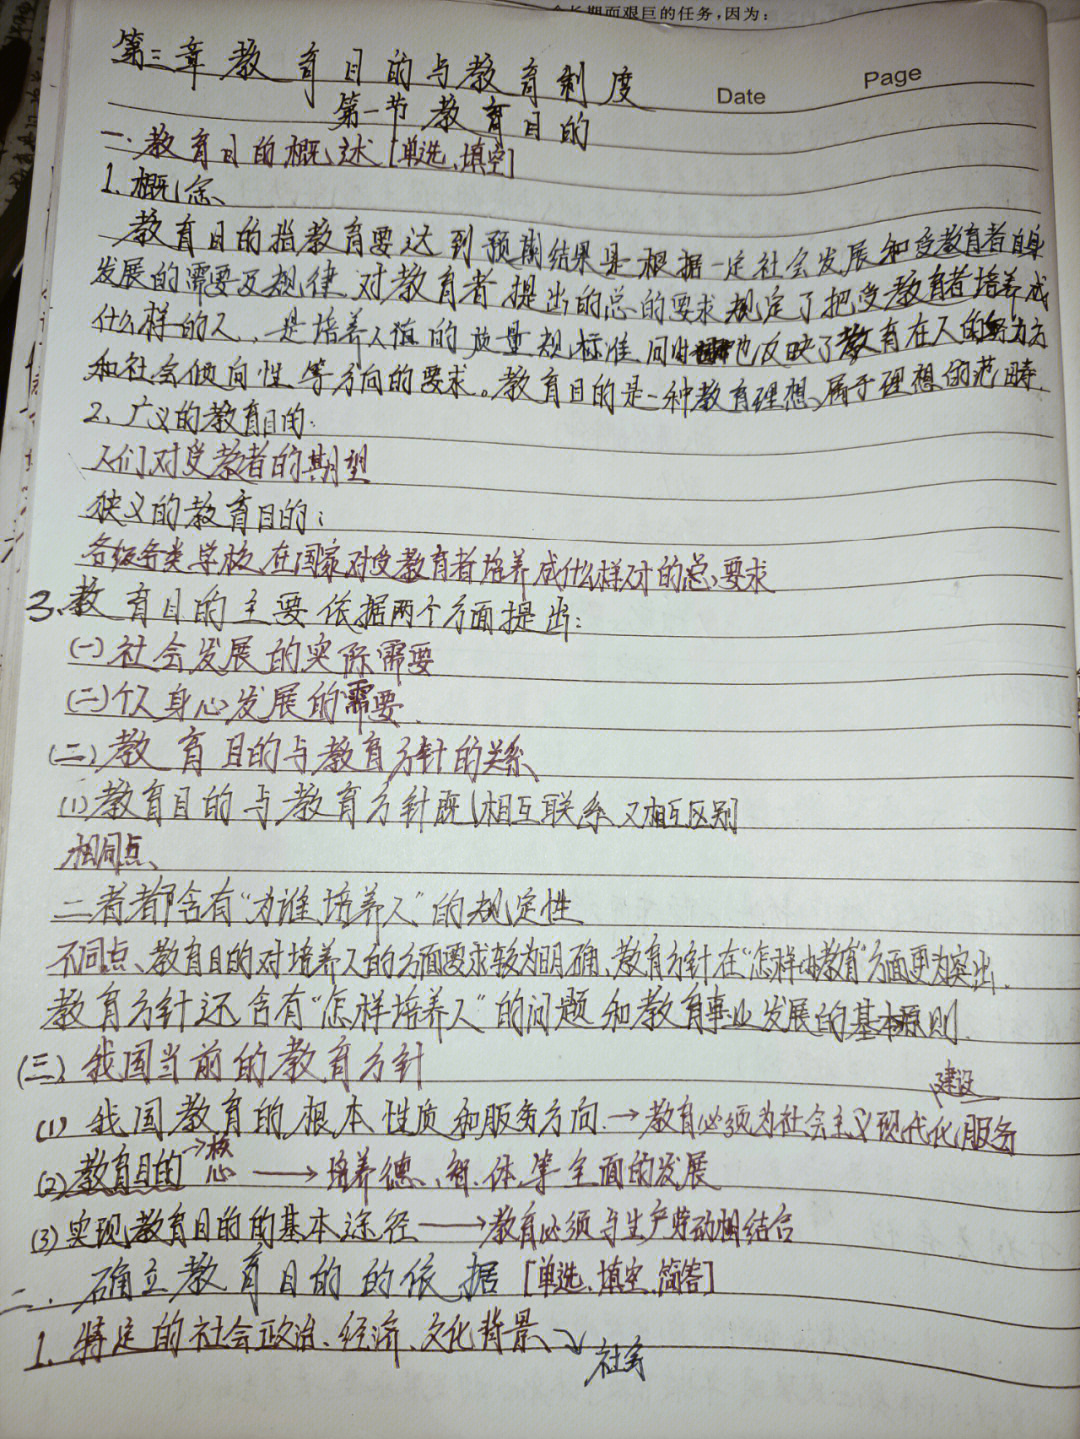 个长期而艰巨的任务,因为:
第三章教育目的与教育制度
Date Page
第一节 教育目的
一、教育目的概述[单选、填空]
1、概念、
教育目的指教育要达到预期结果是根据一定社会发展和受教育者自身
发展的需要及规律 对教育者 提出的总的要求 规定了把受教育者培养成
什么样的人,是培养人值的质量规标准 同时也反映了教育在人的努力方
和社会倾向性等方向的要求。教育目的是一种教育理想、属于理想的范畴.
2、广义的教育目的:
人们对受教者的期望
狭义的教育目的:
各级各类学校在国家对受教育者培养成什么样对的总要求
3、教育目的主要依据两个方面提出:
(一)社会发展的实际需要
(二)个人身心发展的需要.
(二)教育目的与教育方针的关系
(1)教育目的与教育方针既相互联系又相互区别
相同点、
二者都含有“为谁培养人”的规定性
不同点、教育目的对培养人的方面要求较为明确、教育方针在“怎样办教育”方面更为突出.
教育方针还含有“怎样培养人”的问题和教育事业发展的基本原则.
(三)我国当前的教育方针
建设
(1)我国教育的根本性质和服务方向→教育必须为社会主义现代化服务
(2)教育目的→核心→培养德、智、体等全面的发展
(3)实现教育目的的基本途径→教育必须与生产劳动相结合
二、确立教育目的的依据[单选、填空、简答]
1、特定的社会政治、经济、文化背景、↘社会